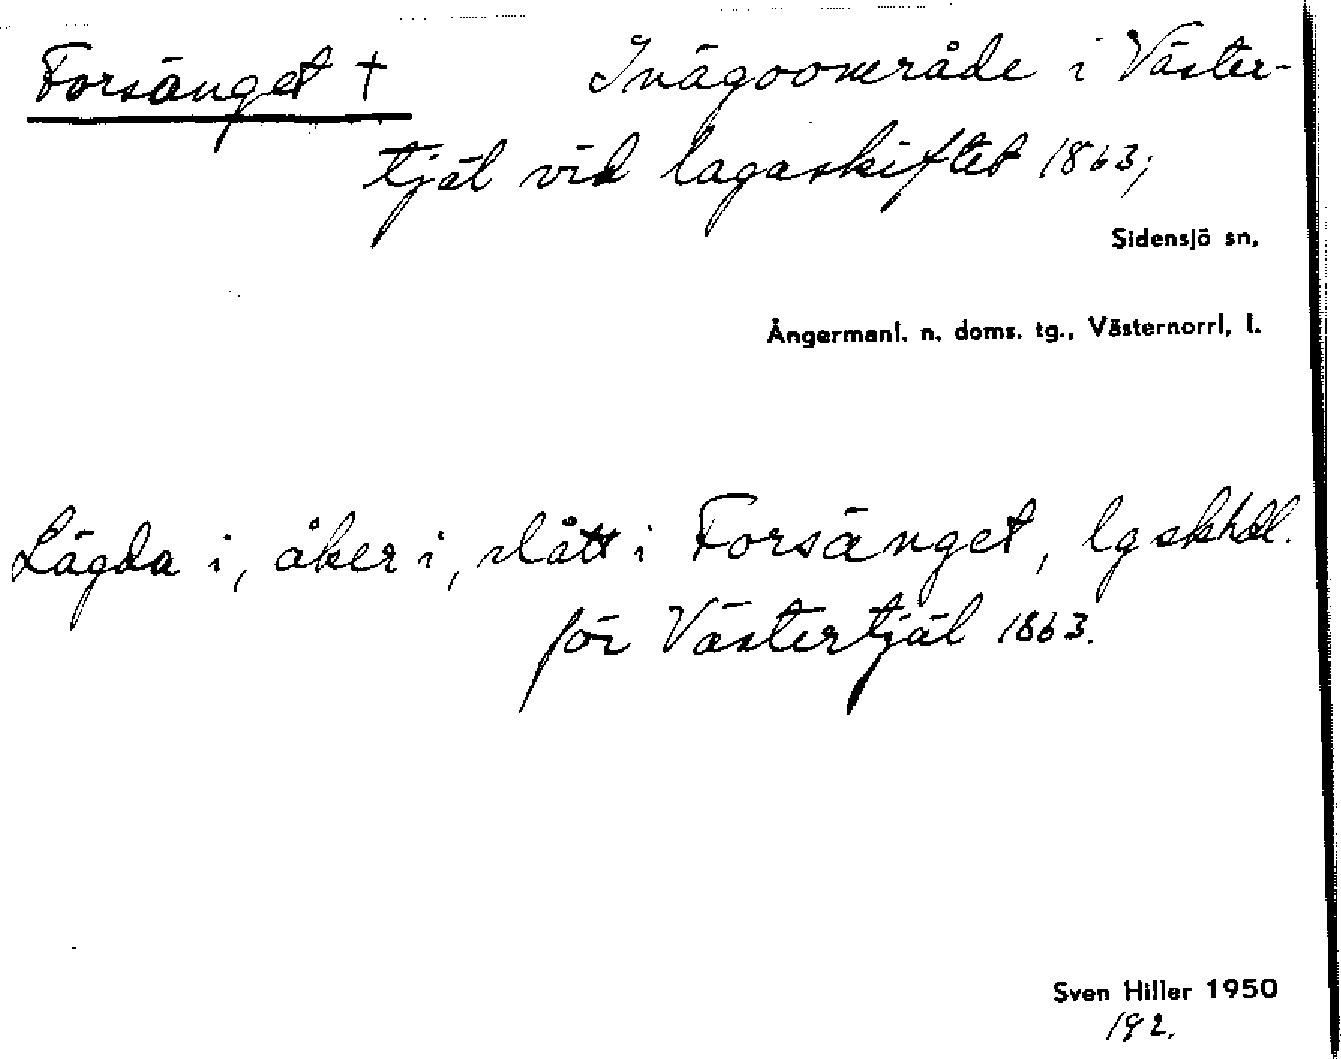 Forsänget †   Inägoområde i Väster-
tjäl vid lagaskiftet 1863;
Sidensjö sn.
Ångermanl. n. doms. tg., Västernorrl. l.
Lägda i, åker i, slått i Forsänget, lgskhdl.
för Västertjäl 1863.
Sven Hiller 1950
192.